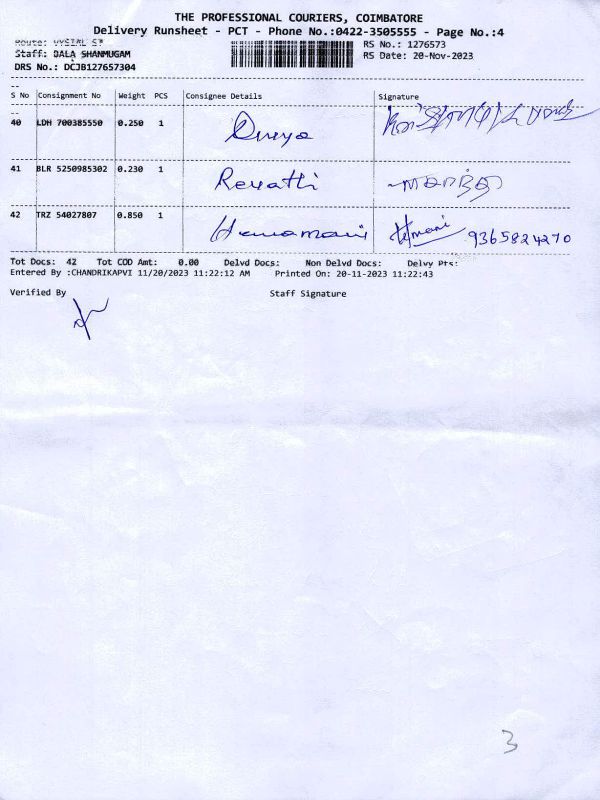 THE PROFESSIONAL COURIERS, COIMBATORE
Delivery Runsheet - PCT - Phone No.:0422-3505555 - Page No.:4
Route: VYSIAL ST
RS No.: 1276573
Staff: BALA SHANMUGAM
RS Date: 20-Nov-2023
DRS No.: DCJB127657304
S No Consignment No Weight PCS Consignee Details Signature
40 LDH 700385550 0.250 1 Divya
41 BLR 5250985302 0.230 1 Revathi
42 TRZ 54027807 0.850 1 Hemamani Hemani 9365824270
Tot Docs: 42 Tot COD Amt: 0.00 Delvd Docs: Non Delvd Docs: Delvy Pts:
Entered By :CHANDRIKAPVI 11/20/2023 11:22:12 AM Printed On: 20-11-2023 11:22:43
Verified By Staff Signature
3